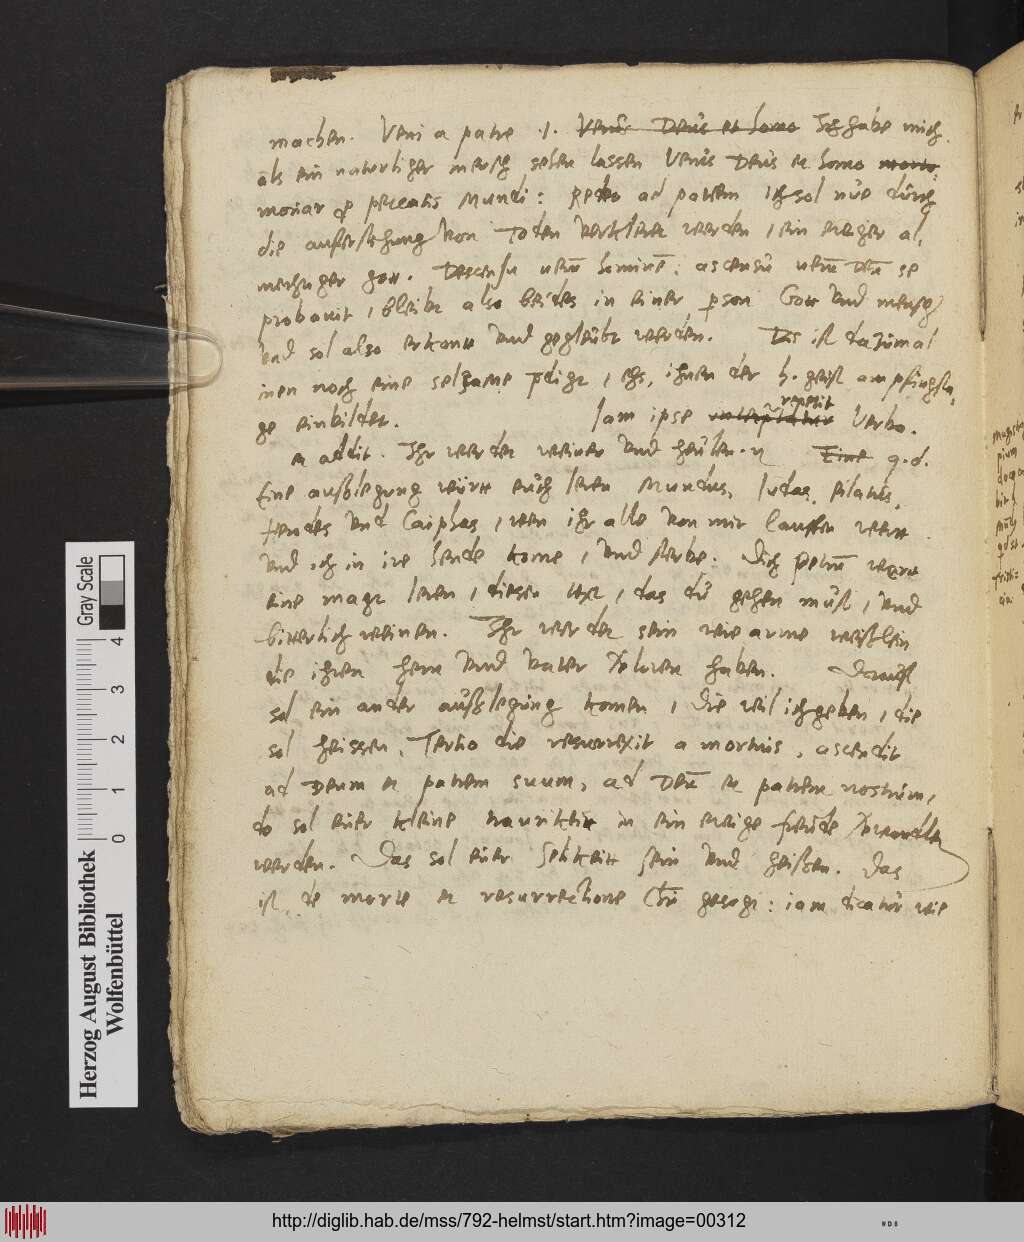 machen. Veni a patre .i. Verus Deus et homo Ich habe mich
als ein naturliger mensch sehen lassen Verus Deus et homo
moriar pro peccatis Mundi: Redeo ad patrem Ich sol nue durch
die aufferstehung von Toden verkleret werden, ein ewiger al,
mechtiger Gott. Descensu verum hominē: ascensu verū Deū se
probavit, bleibt also beides in einer pson Gott und mensch
und sol also erkantt und gegleubt werden. Das ist dazumal
inen noch eine selzame pdigt, ihnen der h. geist am pfingsta,
ge einbildet. Iam ipse repetit Verbo.
et addit. Ihr werdet weinen und heulen. Eine q.d.
Eine außlegung wurtt euch leren Mundus, Iudas, Pilatus,
Herodes und Caiphas, wen ihr alle von mir lauffen wert
und ich in ire hende kome, und sterbe. Dich Petrū
eine magt leren, diesen text, das du gehen must, und
bitterlich weinen. Ihr werdet sein wie arme weißlein
die ihren hern und vater haben. Darauff
sol ein ander außlegung komen, die weil ich geben, die
sol heissen, Tertio die resurrexit a mortuis, ascendit
ad Deum et patrem suum, ad Deū et patrem nostrum,
do sol euer kleine traurikeitt in ein ewige freude
werden. Das sol euer sein und heißen. Das
ist, de morte et resurrectione Chri gesagt: iam dicatur wie
Gray Scale
0 1 2 3 4
Herzog August Bibliothek
Wolfenbüttel
http://diglib.hab.de/mss/792-helmst/start.htm?image=00312